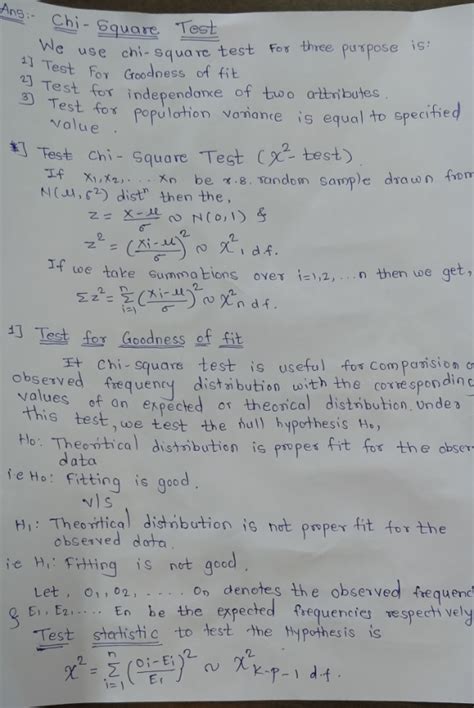 Ans:- Chi-Square Test
We use chi-square test For three purpose is:
1] Test For Goodness of fit
2] Test for independance of two attributes.
3] Test for population variance is equal to specified
value.
*] Test Chi-Square Test (χ²-test).
If x₁,x₂,... xn be x.8. random sample drawn from
N(μ,σ²) distⁿ then the,
z = x-μ/σ ~ N(0,1) &
z² = (xi-μ/σ)² ~ χ²₁ d.f.
If we take summations over i=1,2,...n then we get,
Σz² = Σⁿᵢ₌₁ (xi-μ/σ)² ~ χ²n d.f.
1] Test for Goodness of fit
It chi-square test is useful for comparision o
observed frequency distribution with the corresponding
values of an expected or theorical distribution. Under
this test, we test the null hypothesis H₀,
H₀: Theoritical distribution is proper fit for the obser
data
i.e H₀: Fitting is good.
v/s
H₁: Theoritical distribution is not proper fit for the
observed data.
ie H₁: Fitting is not good.
Let, O₁, O₂, ..... On denotes the observed frequenc
& E₁, E₂,.... En be the expected frequencies respectively
Test statistic to test the Hypothesis is
χ² = Σⁿᵢ₌₁ (Oi-Ei/Ei)² ~ χ²K-P-1 d.f.